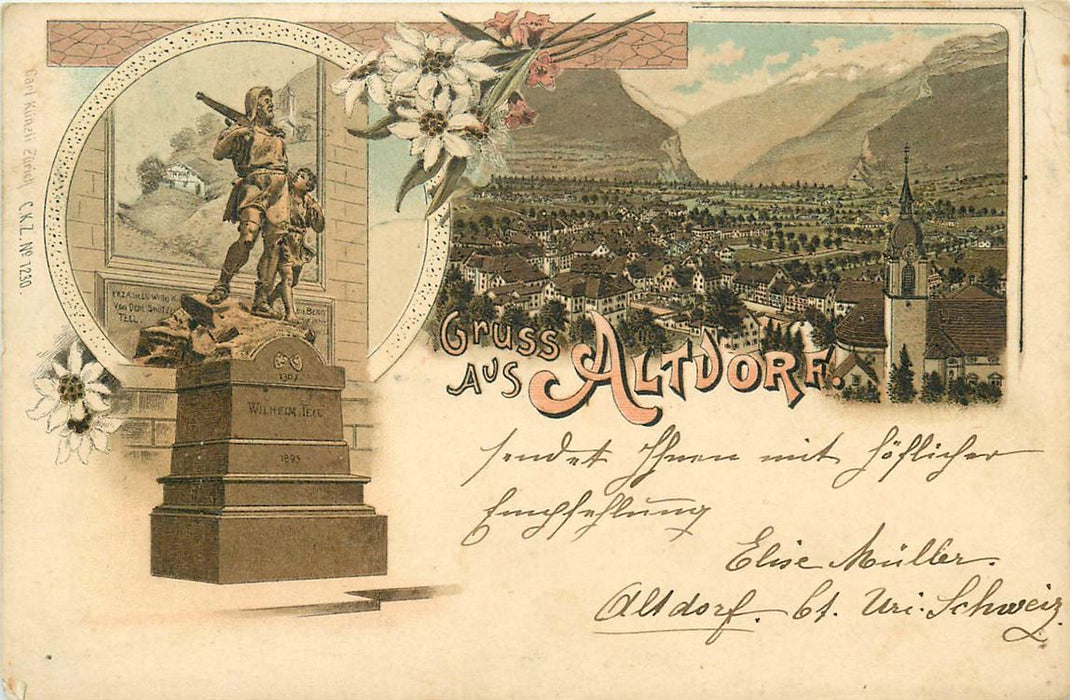 Carl Künzli Zürich C.K.Z. No 1280.
ERZÄHLEN WIRD MAN
VON DEM SCHÜTZEN
TELL
1307
WILHELM TELL
1895
GRUSS
AUS ALTDORF.
sendet Ihnen mit höflicher
Empfehlung
Elise Müller.
Altdorf. Ct. Uri. Schweiz.